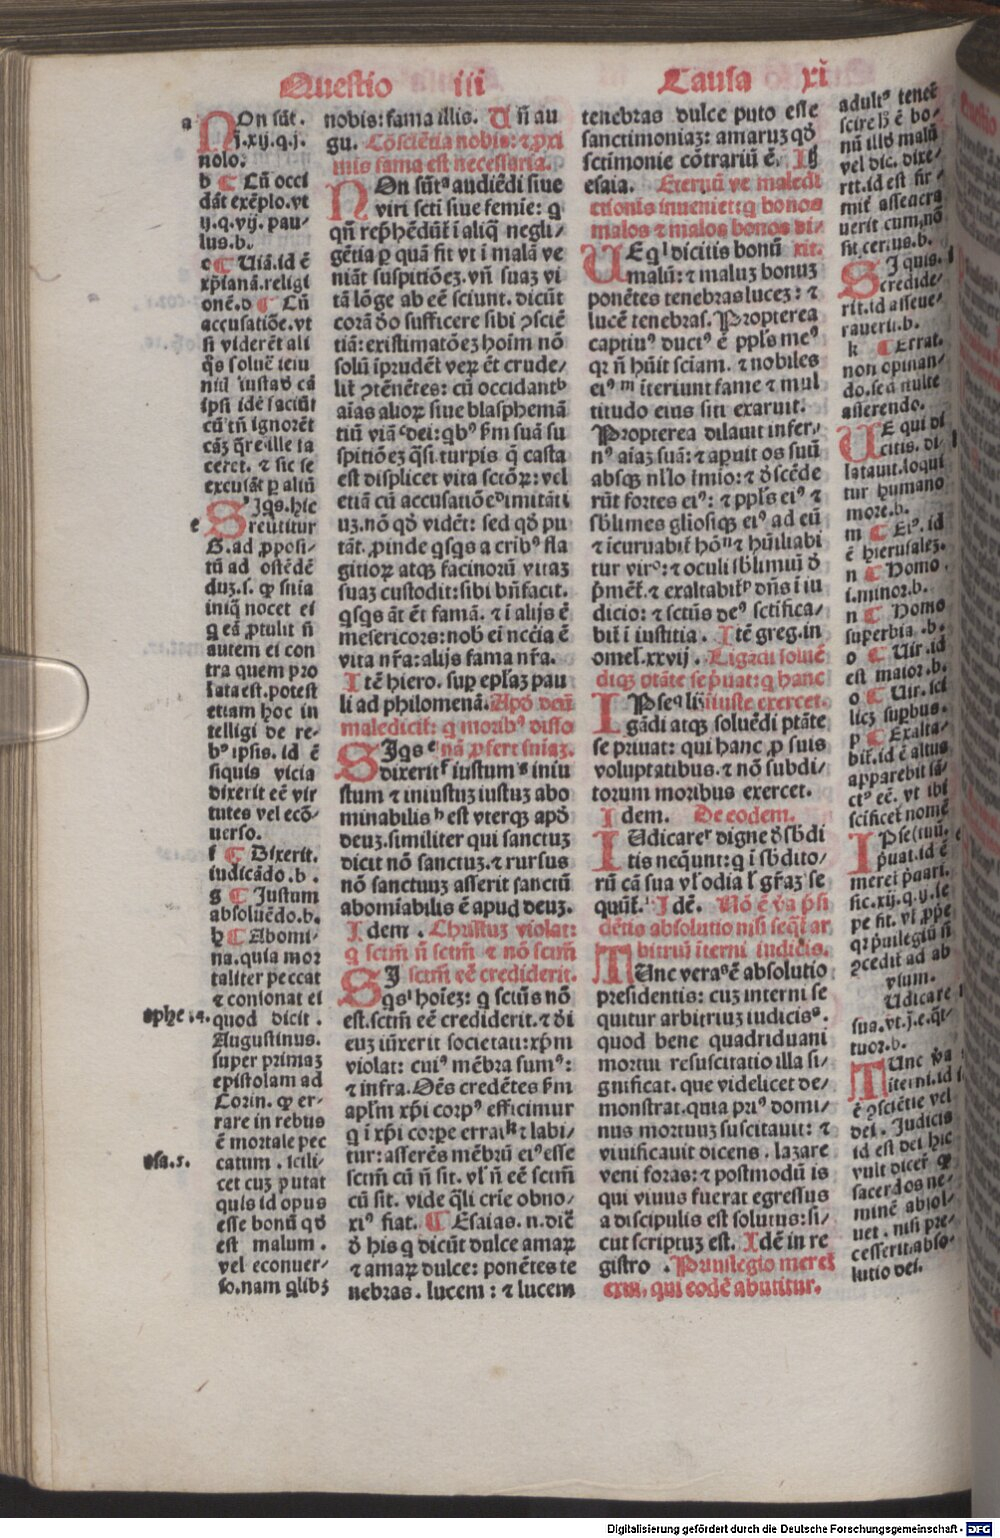 Questio iii Causa xi
a NOn sūt.
j.xij.q.j.
nolo.
b ¶ Cū occi
dāt exēplo.vt
ij.q.vij. pau/
lus.b.
c ¶ Uiā.id ē
xp̄ianā.religi
onē.d ¶ Cū
accusatiōe.vt
si viderēt ali
ipsi idē faciūt
cū tn̄ ignorēt
ceret. ⁊ sic se
excusāt ꝑ aliū
e SI q̄s.hic
reuertitur
G.ad ꝓposi/
tū ad ostēdē
duꝫ.s. ꝙ sn̄ia
iniq̄ nocet ei
q eā ꝓtulit n̄
autem ei con
tra quem pro
lata est.potest
etiam hoc in
telligi de re/
bꝰ ipsis. id ē
siquis vicia
dixerit eē vir
tutes vel ecō/
uerso.
f ¶ Dixerit.
iudicādo.b.
g ¶ Justum
absoluēdo.b.
h ¶ Abomi/
na.quia mor
taliter peccat
⁊ consonat ei
ephe .4. quod dicit.
Augustinus.
super primaꝫ
epistolam ad
Corin. ꝙ er/
rare in rebus
ē mortale pec
esa.5. catum. scili/
cet cuꝫ putat
quis id opus
esse bonū qd̄
est malum.
vel econuer/
so.nam qlibꝫ
nobis:fama illis. Un̄ au
gu. Cōsciētia nobis:⁊ ꝓxi
mis fama est necessaria.
NOn sūtᵃ audiēdi siue
viri scti siue femie: q
qn̄ rep̄hēdūt̄ ī aliq̄ negli/
gētia ꝑ quā fit vt ī malā ve
niāt suspitiōeꝫ.vn̄ suaꝫ vi
tā lōge ab eē sciunt. dicūt
corā do sufficere sibi ꝯsciē
tiā:existimatōeꝫ hoim nō
solū īprudēt̄ veꝝ ēt crude/
lit̄ ꝯtēnētes: cū occidantᵇ
aīas alioꝝ siue blasphemā
tiū viāᶜ dei:qbꝰ ẜm suā su
spitiōeꝫ q̄si turpis q̄ casta
est displicet vita sctōꝝ:vel
etiā cū accusatiōeᵈ imitāti
uꝫ.nō qd̄ vidēt: sed qd̄ pu
tāt.ꝓinde qsqs a cribꝰ fla
gitioꝝ atqꝫ facinorū vitaꝫ
suaꝫ custodit:sibi bn̄facit.
qsqs āt ēt famā. ⁊ ī alijs ē
misericors:nob̄ ei nccīa ē
vita nr̄a:alijs fama nr̄a.
Itē hiero. suꝑ epl̄aꝫ pau
li ad philomenā. Apd̄ deū
maledicit̄: q moribꝰ disso
SIqsᵉ nā ꝓfert sniaꝫ.
dixeritᶠ iustumᵍ iniu
stum ⁊ iniustuꝫ iustuꝫ abo
minabilisʰ est vterqꝫ apd̄
deuꝫ.similiter qui sanctuꝫ
dicit nō sanctuꝫ.⁊ rursus
nō sanctuuꝫ asserit sanctū
abomīabilis ē apud deuꝫ.
Idem. Christuꝫ violat:
q sctm̄ n̄ sctm̄ ⁊ nō sctm̄
SI sctm̄ eē crediderit.
qsⁱ hoīeꝫ: q sctūs nō
est.sctm̄ eē crediderit.⁊ di
euꝫ iūxerit societati:xp̄m
violat: cuiꝰ mēbra sumꝰ:
⁊ infra.Oēs credētes ẜm
apl̄m xp̄i corpꝰ efficimur
q ī xp̄i corpe erraᵏ ⁊ labi/
tur:asserēs mēbrū eiꝰ esse
sctm̄ cū n̄ sit. vl̄ n̄ eē sctm̄
cū sit. vide q̄li crīe obno/
xiꝰ fiat. ¶ Esaias. n.dic̄
d̄ his q dicūt dulce amaꝝ
⁊ amaꝝ dulce: ponētes te
nebras. lucem: ⁊ lucem
tenebras dulce puto esse
sanctimoniaꝫ: amaruꝫ qd̄
sctimonie cōtrariū ē. Iꝫ
esaia. Eternū ve maledi
ctionis inueniet:q bonos
malos ⁊ malos bonos di/
UE qˡ dicitis bonū xit.
malū: ⁊ maluꝫ bonuꝫ
ponētes tenebras luceꝫ: ⁊
lucē tenebras. Propterea
captiuꝰ ductꝰ ē ppl̄s meꝰ
qꝛ n̄ hūit sciam. ⁊ nobiles
eiꝰᵐ īteriunt fame ⁊ mul
titudo eius siti exaruit.
Propterea dilauit infer/
nꝰ aīaꝫ suā: ⁊ aꝑuit os suū
absqꝫ nllo t̄mio: ⁊ d̄scēde
rūt fortes eiꝰ: ⁊ ppl̄s eiꝰ ⁊
sb̄limes gl̄iosiqꝫ eiꝰ ad eū
⁊ īcuruabit̄ hōⁿ ⁊ hūiliabi
tur virᵒ: ⁊ oculi sb̄limiū d̄
p̄mēt̄.⁊ exaltabit̄ᵖ dn̄s ī iu
dicio: ⁊ sctūs deꝰ sctifica/
bit̄ ī iustitia. Itē greg.in
omel̄.xxvij. Ligādi soluē
diqꝫ ptāte se p̄uat:q hanc
IPseq li iniuste exercet.
gādi atqꝫ soluēdi ptāte
se priuat: qui hanc ꝓ suis
voluptatibus.⁊ nō subdi/
torum moribus exercet.
Idem. De eodem.
IUdicareʳ digne d̄ sb̄di
tis neq̄unt:q ī sb̄dito/
rū cā sua vl̄ odia l̄ gr̄aꝫ se
quūt̄. Idē. Nō ē v̄a p̄si
dētis absolutio nisi seqt̄ ar
bitriū īterni iudicis.
TUnc veraˢ ē absolutio
presidentis: cuꝫ interni se
quitur arbitriuꝫ iudicisᵘ.
quod bene quadriduani
mortui resuscitatio illa si/
gnificat. que videlicet de/
monstrat.quia priꝰ domi/
nus mortuuꝫ suscitauit: ⁊
viuificauit dicens. lazare
veni foras: ⁊ postmodū is
qui viuus fuerat egressus
a discipulis est solutus:si/
cut scriptuꝫ est. Idē in re
gistro. Priuilegio meret̄
exui, qui eodē abutitur.
adultꝰ tenet̄
scire hꝫ ē bo/
nū illd̄ malū
vel dic. dixe/
rit.id est fir/
mit̄ asseuera
uerit cum.nō
sit certus.b.
SI quis.
credide/
rit.id asseue/
rauerit.b.
k ¶ Errat.
non opinan/
do.sed stulte
asserendo.
UE qui di
citis. di/
latauit.loqui
tur humano
more.b.
m ¶ Eiꝰ. id
ē hierusaleꝫ.
n ¶ Homo.
i.minor.b.
n ¶ Homo
superbia.b.
o ¶ Uir.id
est maior.b.
o ¶ Uir. sci
licꝫ suꝑbus.
p ¶ Exalta/
bit̄.id ē altus
apparebit sā/
ctꝰ eē. vt ibi
scificet̄ nomē
IPse tuū.
p̄uat.id ē
meret̄ p̄uari.
sic.xij.q.ij.se
pe fit. vl̄ ꝓpe
qꝛ p̄uilegiū n̄
ꝯcedit ad ab
vsum.
Udicare
sua.vt.j.e.q̄t/
tuor.b.
TUnc v̄a
īterni.id
ē ꝯsciētie vel
dei. Judicis
id est dei hic
vult dicer̄ ꝙ
sacerdos ne/
minē absol/
uet. nisi pre/
cesserit.abso/
lutio dei.
Digitalisierung gefördert durch die Deutsche Forschungsgemeinschaft - DFG